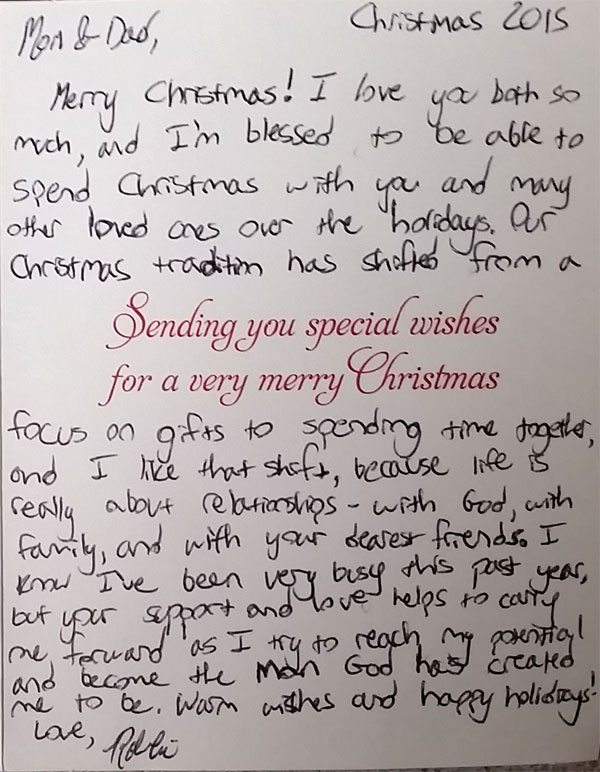 Christmas 2015
Mom & Dad,
Merry Christmas! I love you both so
much, and I'm blessed to be able to
spend Christmas with you and many
other loved ones over the holidays. Our
Christmas tradition has shifted from a
Sending you special wishes
for a very merry Christmas
focus on gifts to spending time together,
and I like that shift, because life is
really about relationships - with God, with
family, and with your dearest friends. I
know I've been very busy this past year,
but your support and love helps to carry
me forward as I try to reach my potential
and become the man God has created
me to be. Warm wishes and happy holidays!
Love,